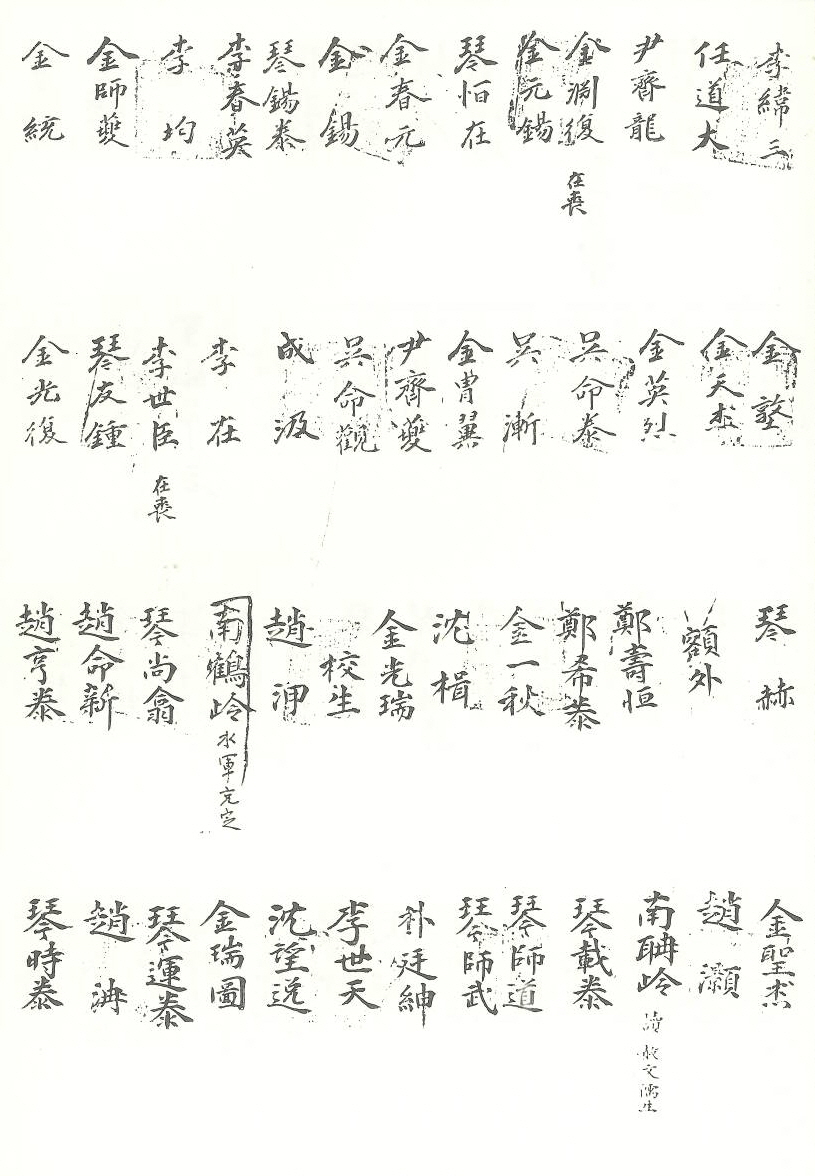 李緯三
任道大
尹齊龍
金淵復 在喪
金元錫
琴怕在
金春元
金錫
琴錫泰
李春英
李均
金師夔
金統
金墪
金天杰
金英烈
吳命泰
吳漸
金胄翼
尹齊夔
吳命觀
成汲
李在
李世臣 在喪
琴友鍾
金光復
琴赫
額外
鄭壽恒
鄭希泰
金一秋
沈楫
金光瑞
校生
趙泙
南鶴岭 水軍充定
琴尚翕
趙命新
趙亨泰
金聖杰
趙灝
南聃岭
琴載泰
琴師道
琴師武
朴廷紳
李世天
沈望逸
金瑞圖
琴運泰
趙溿
琴時泰